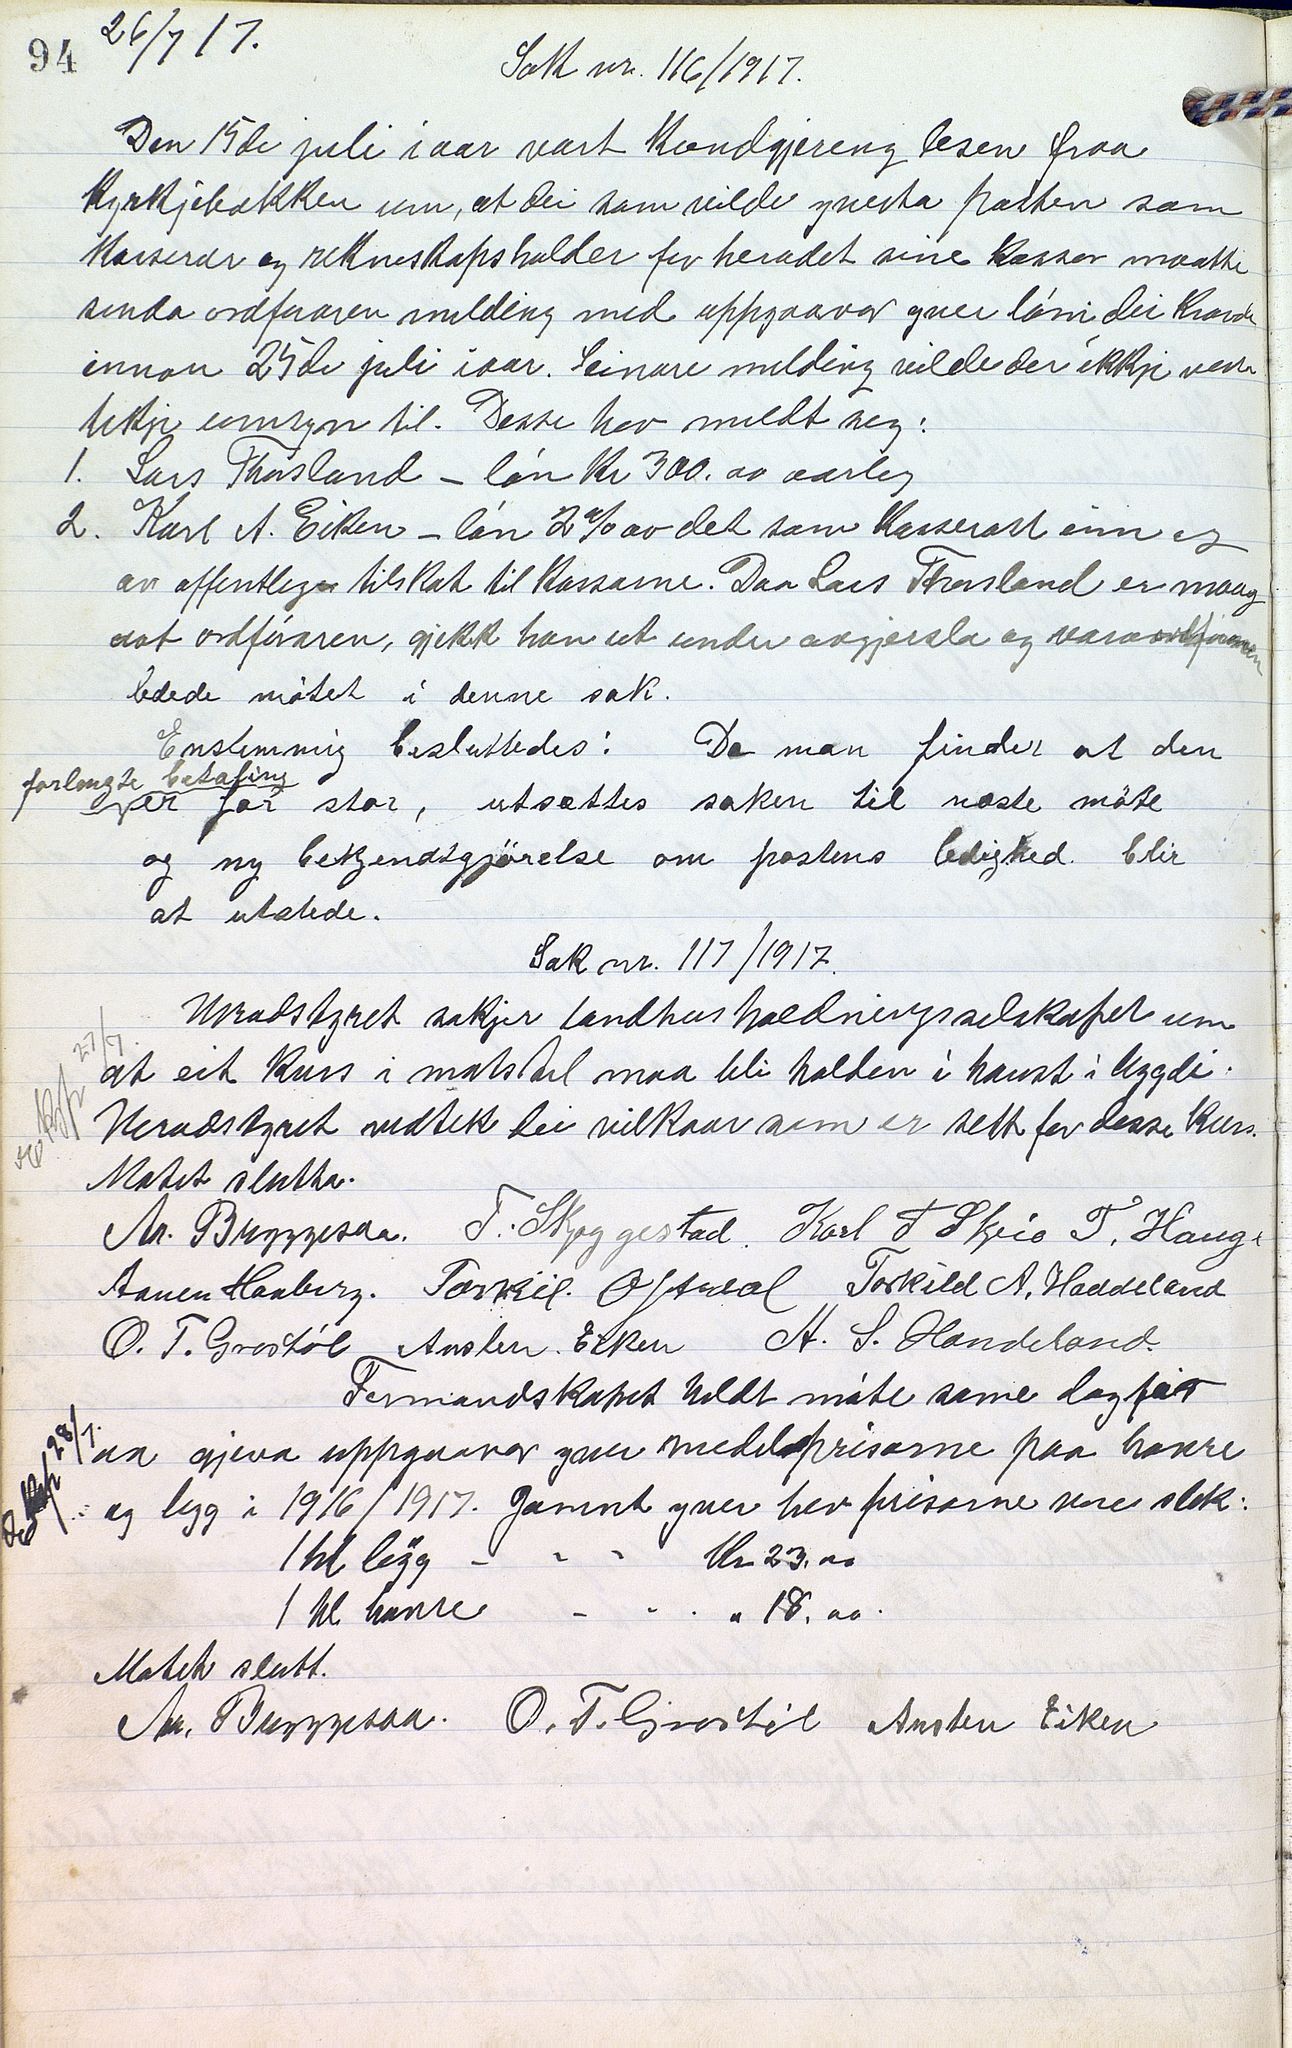 94
26/7 17.
Sak nr. 116/1917.
Den 15de juli i aar vart kundgjereng lesen fraa
kyrkjebakken um, at dei som vilde ynskta posten som
kasserar og rekneskapshalder for heradet sine kassor maatte
senda ordføraren melding med uppgaavor yver løni dei kravde
innan 25de juli i aar. Seinare melding vilde der ikkje verta
tekje umsyn til. Desse hev meldt seg:
1. Lars Thorsland - løn kr 300.00 aarleg
2. Karl A. Eiken - løn 2% av det som kasserast inn og
av offentlege tilskot til kassarne. Daa Lars Thorsland er maag
aat ordføraren, gjekk han ut under avgjersla og varaordføraren
ledede møtet i denne sak.
Enstemmig besluttedes: Da man finder at den
forlangte betaling
er for stor, utsættes saken til næste møte
og ny bekjendtgjørelse om postens ledighed blir
at utstede.
Sak nr. 117/1917.
Heradstyret søkjer landhusholdningsselskapet um
at eit kurs i matstel maa bli halden i haust i bygdi.
27/7.
Heradstyret vedtek dei vilkaar som er sett for desse kurs.
Møtet slutta.
An. Bryggesaa. T. Skjeggestad. Karl T Skeie T. Haug.
Aanen Haaberg. Torkil. Oftedal Torkild A. Haddeland
O. T. Grostøl Austen. Eiken A. S. Handeland.
Formandskapet heldt møte same dag for
28/7.
aa gjeva uppgaavor yver medelprisarne paa havre
og bygg i 1916/1917. Jamnt yver hev prisarne vore slik:
1 hl bygg - - - Kr 23.00
1 hl havre - - - " 18.00.
Møtet slutt.
An. Bryggesaa. O. T. Grostøl Austen Eiken